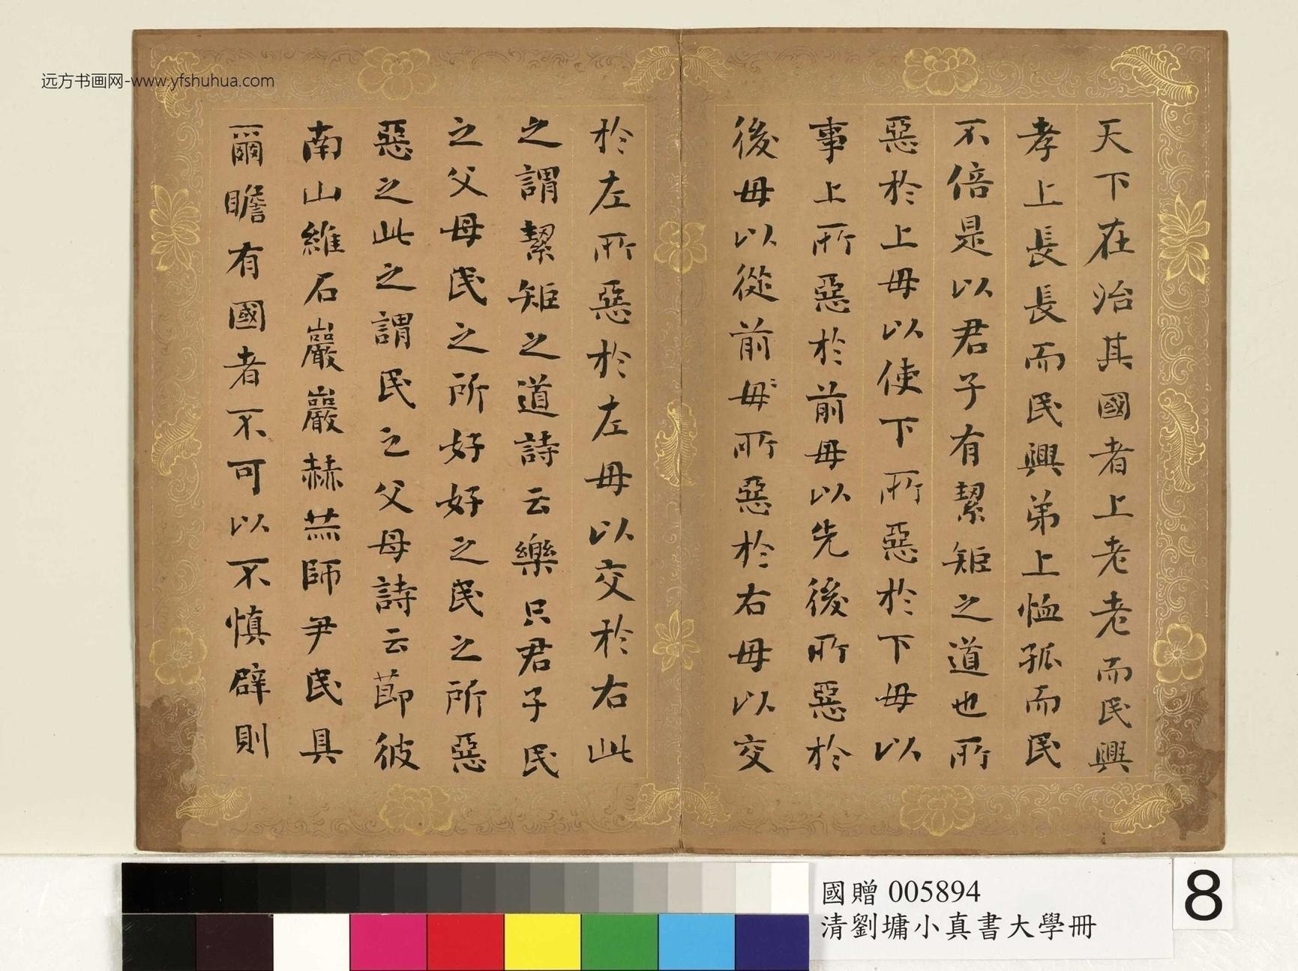 远方书画网-www.yfshuhua.com
天下在治其國者上老老而民興
孝上長長而民興弟上恤孤而民
不倍是以君子有絜矩之道也所
惡於上毋以使下所惡於下毋以
事上所惡於前毋以先後所惡於
後毋以從前毋所惡於右毋以交
於左所惡於左毋以交於右此
之謂絜矩之道詩云樂只君子民
之父母民之所好好之民之所惡
惡之此之謂民之父母詩云節彼
南山維石巖巖赫赫師尹民具
爾瞻有國者不可以不慎辟則
國贈 005894
清劉墉小真書大學冊
8